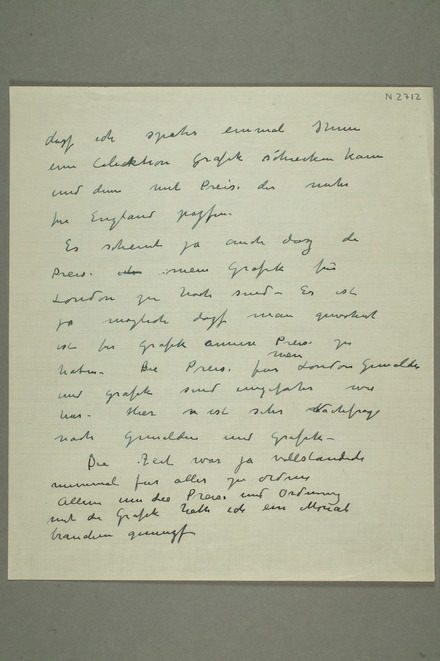 N 2712
dass ich später einmal Ihnen
eine Colecktion Grafik schicken kann
und dann mit Preise die mehr
für England passen.
Es scheint ja auch dass die
Preise meine Grafik für
London zu hoch sind. Es ist
ja möglich dass man gewohnt
ist für Grafik andere Preise zu
haben. Die Preise für mein London Gemälde
und Grafik sind ungefähr wie
hier. Hier ist sehr Nachfrage
nach Gemälden und Grafik.
Die Zeit war ja vollständich
minimal für alles zu ordnen
Allein um die Preise und Ordnung
mit die Grafik hätte ich ein Monat
brauchen